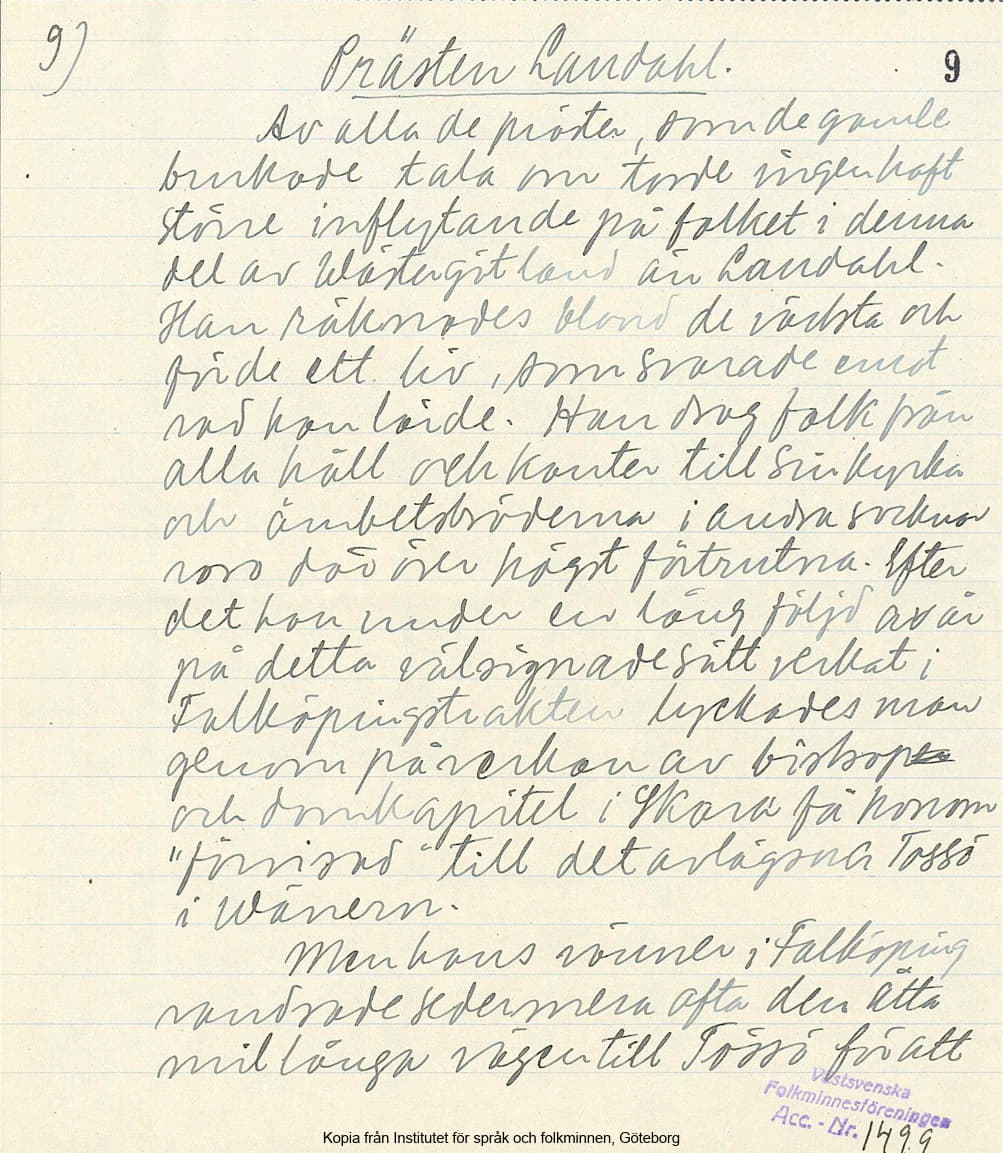 9)
Prästen Landahl.
9
Av alla de präster, som de gamle
brukade tala om torde ingen haft
större inflytande på folket i denna
del av Wästergötland än Landahl.
Han räknades bland de väckta och
förde ett liv, som svarade emot
vad han lärde. Han drog folk från
alla håll och kanter till sin kyrka
och ämbetsbröderna i andra socknar
voro däröver högst förtrutna. Efter
det han under en lång följd av år
på detta välsignade sätt verkat i
Falköpingstrakten lyckades man
genom påverkan av biskop
och domkapitel i Skara få honom
"förvisad" till det avlägsna Tössö
i Wänern.
Men hans vänner i Falköping
vandrade sedermera ofta den åtta
mil långa vägen till Tössö för att
Västsvenska
Folkminnesföreningen
Acc. - Nr. 1499
Kopia från Institutet för språk och folkminnen, Göteborg